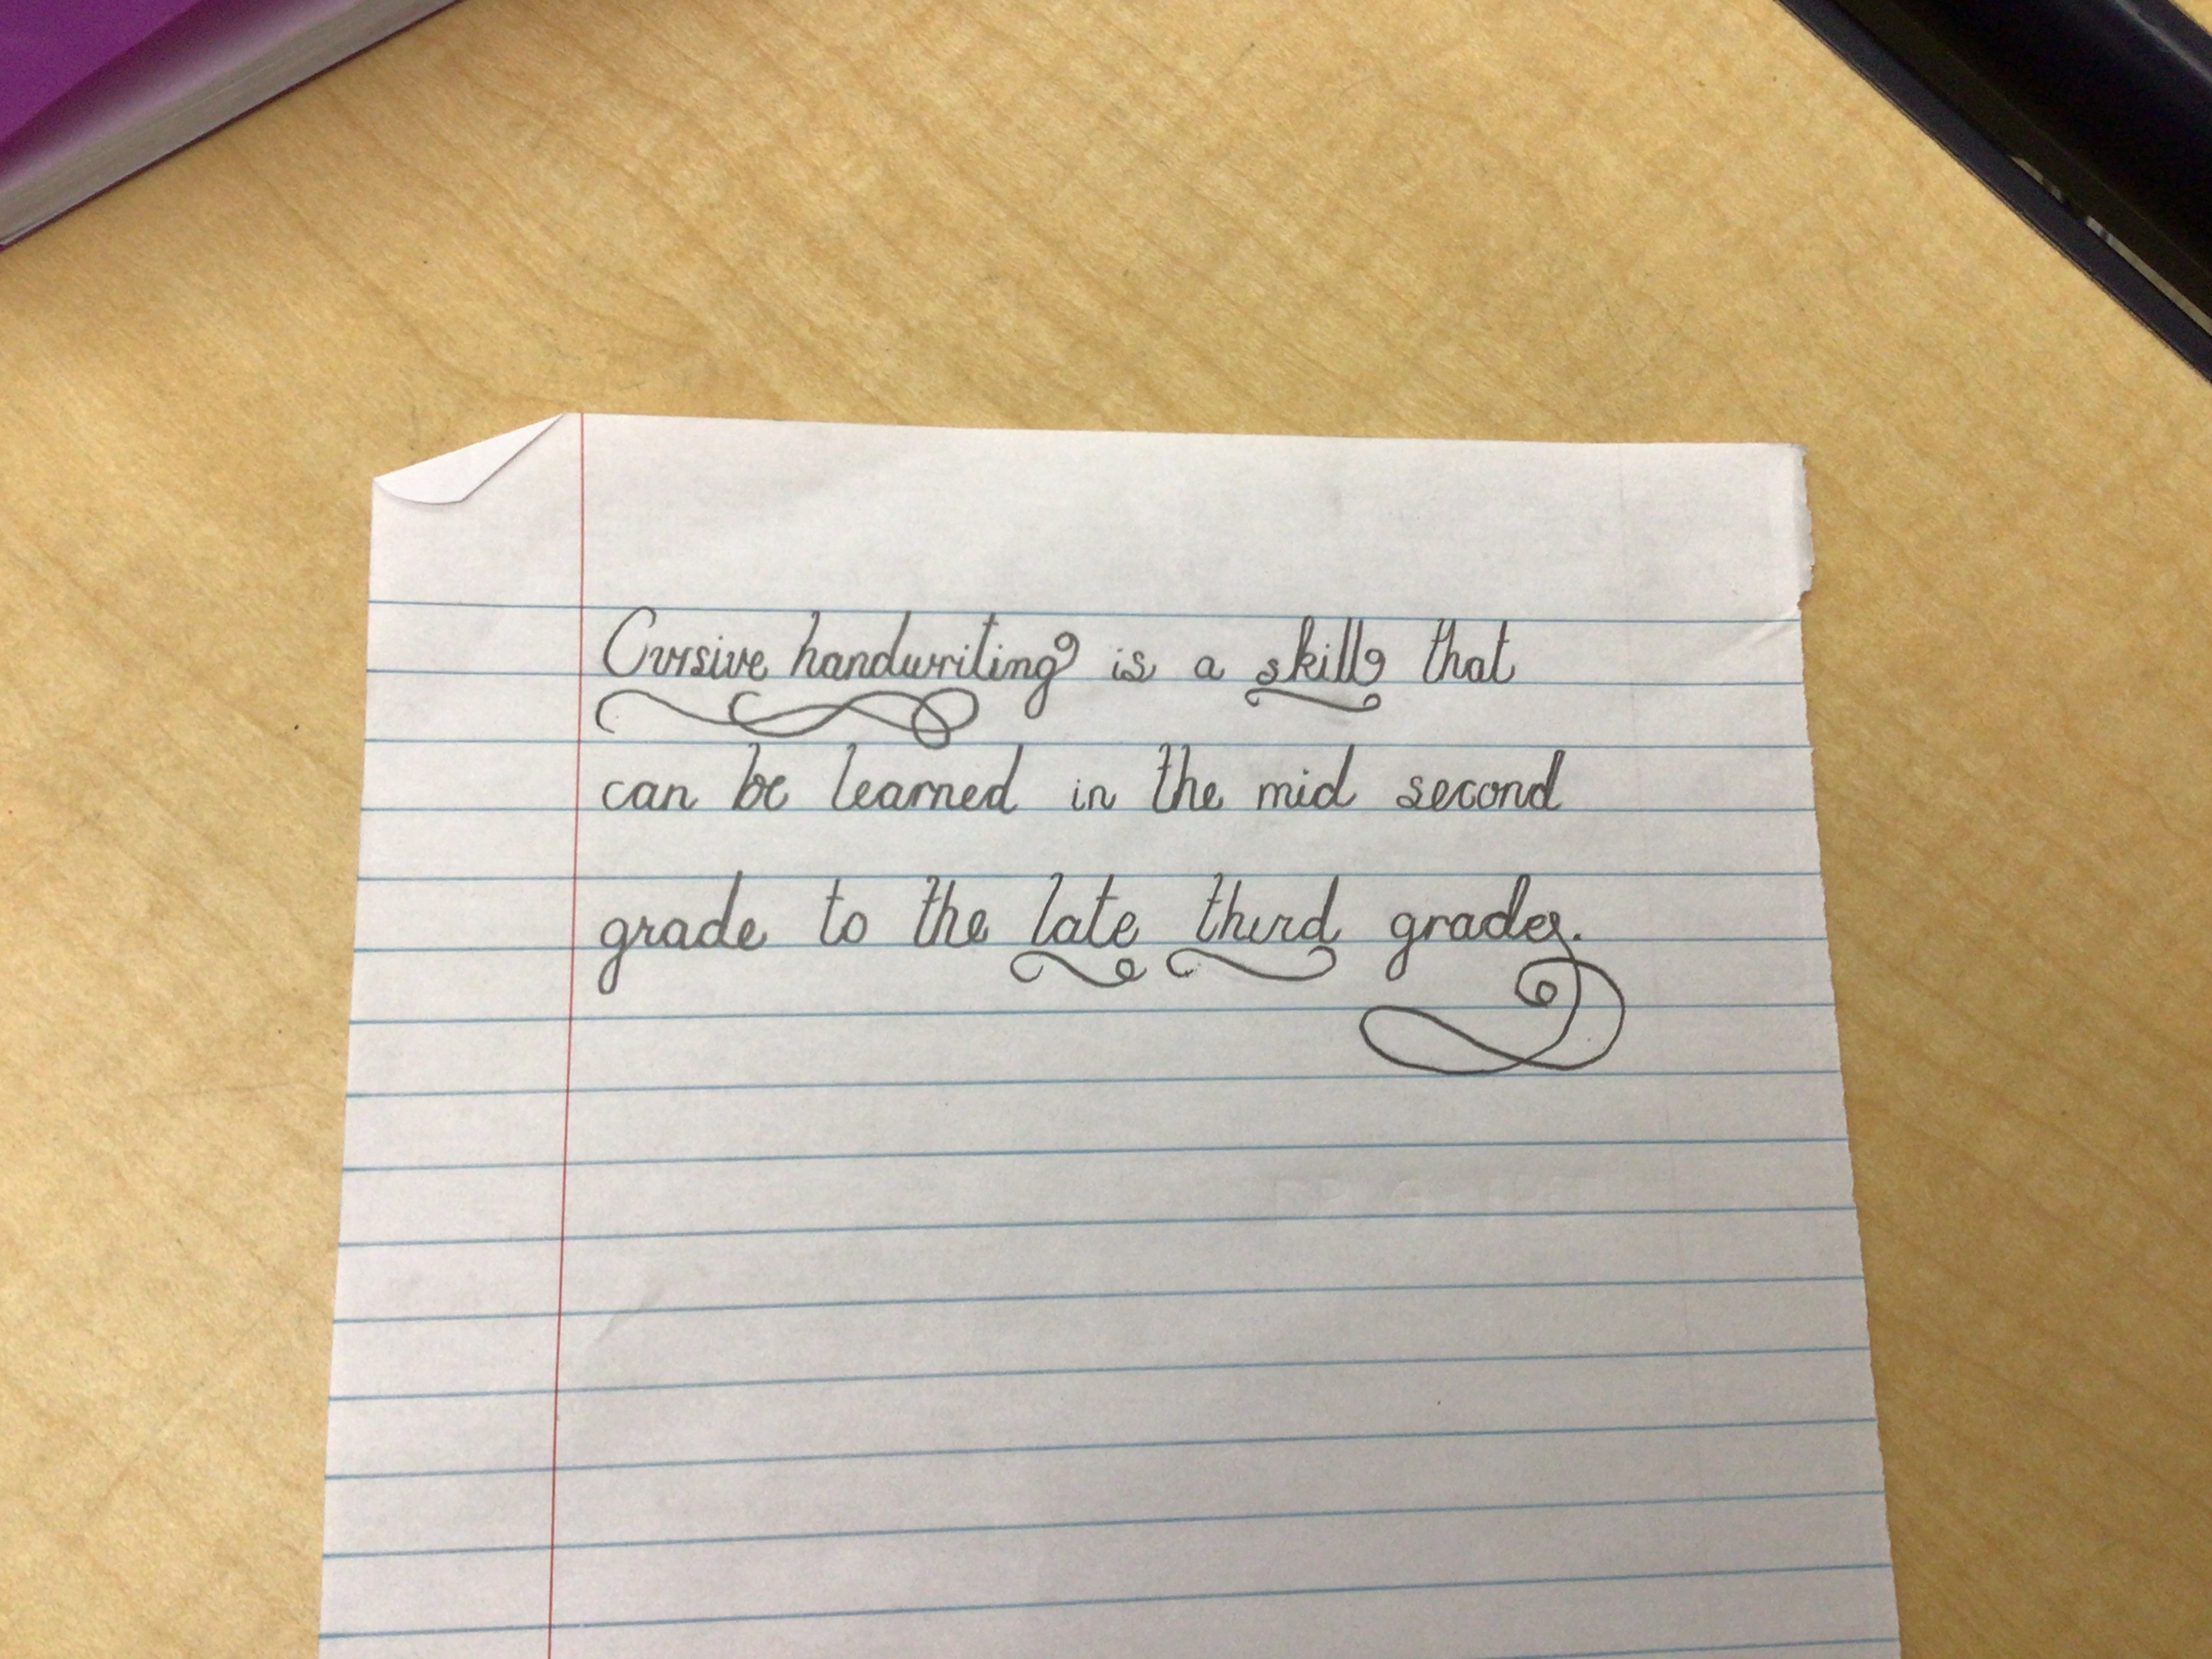 Cursive handwriting is a skill that
can be learned in the mid second
grade to the late third grade.